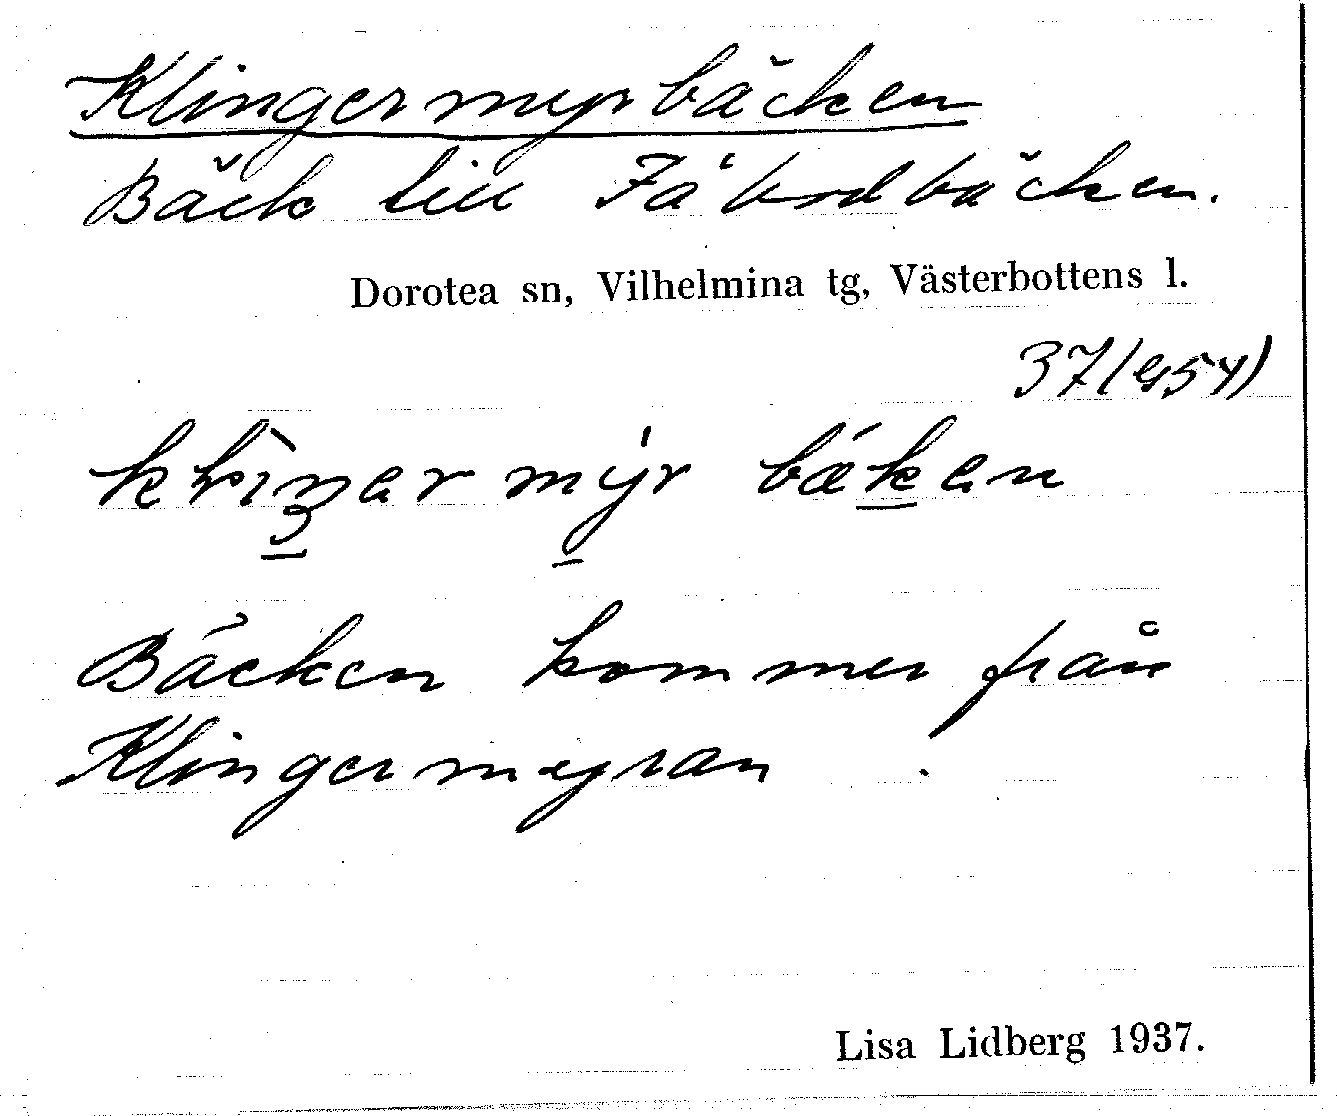 Klingermyrbäcken
Bäck till Fäbodbäcken.
Dorotea sn, Vilhelmina tg, Västerbottens l.
bäkan
Bäcken kommer från
Klingermyran.
Lisa Lidberg 1937.